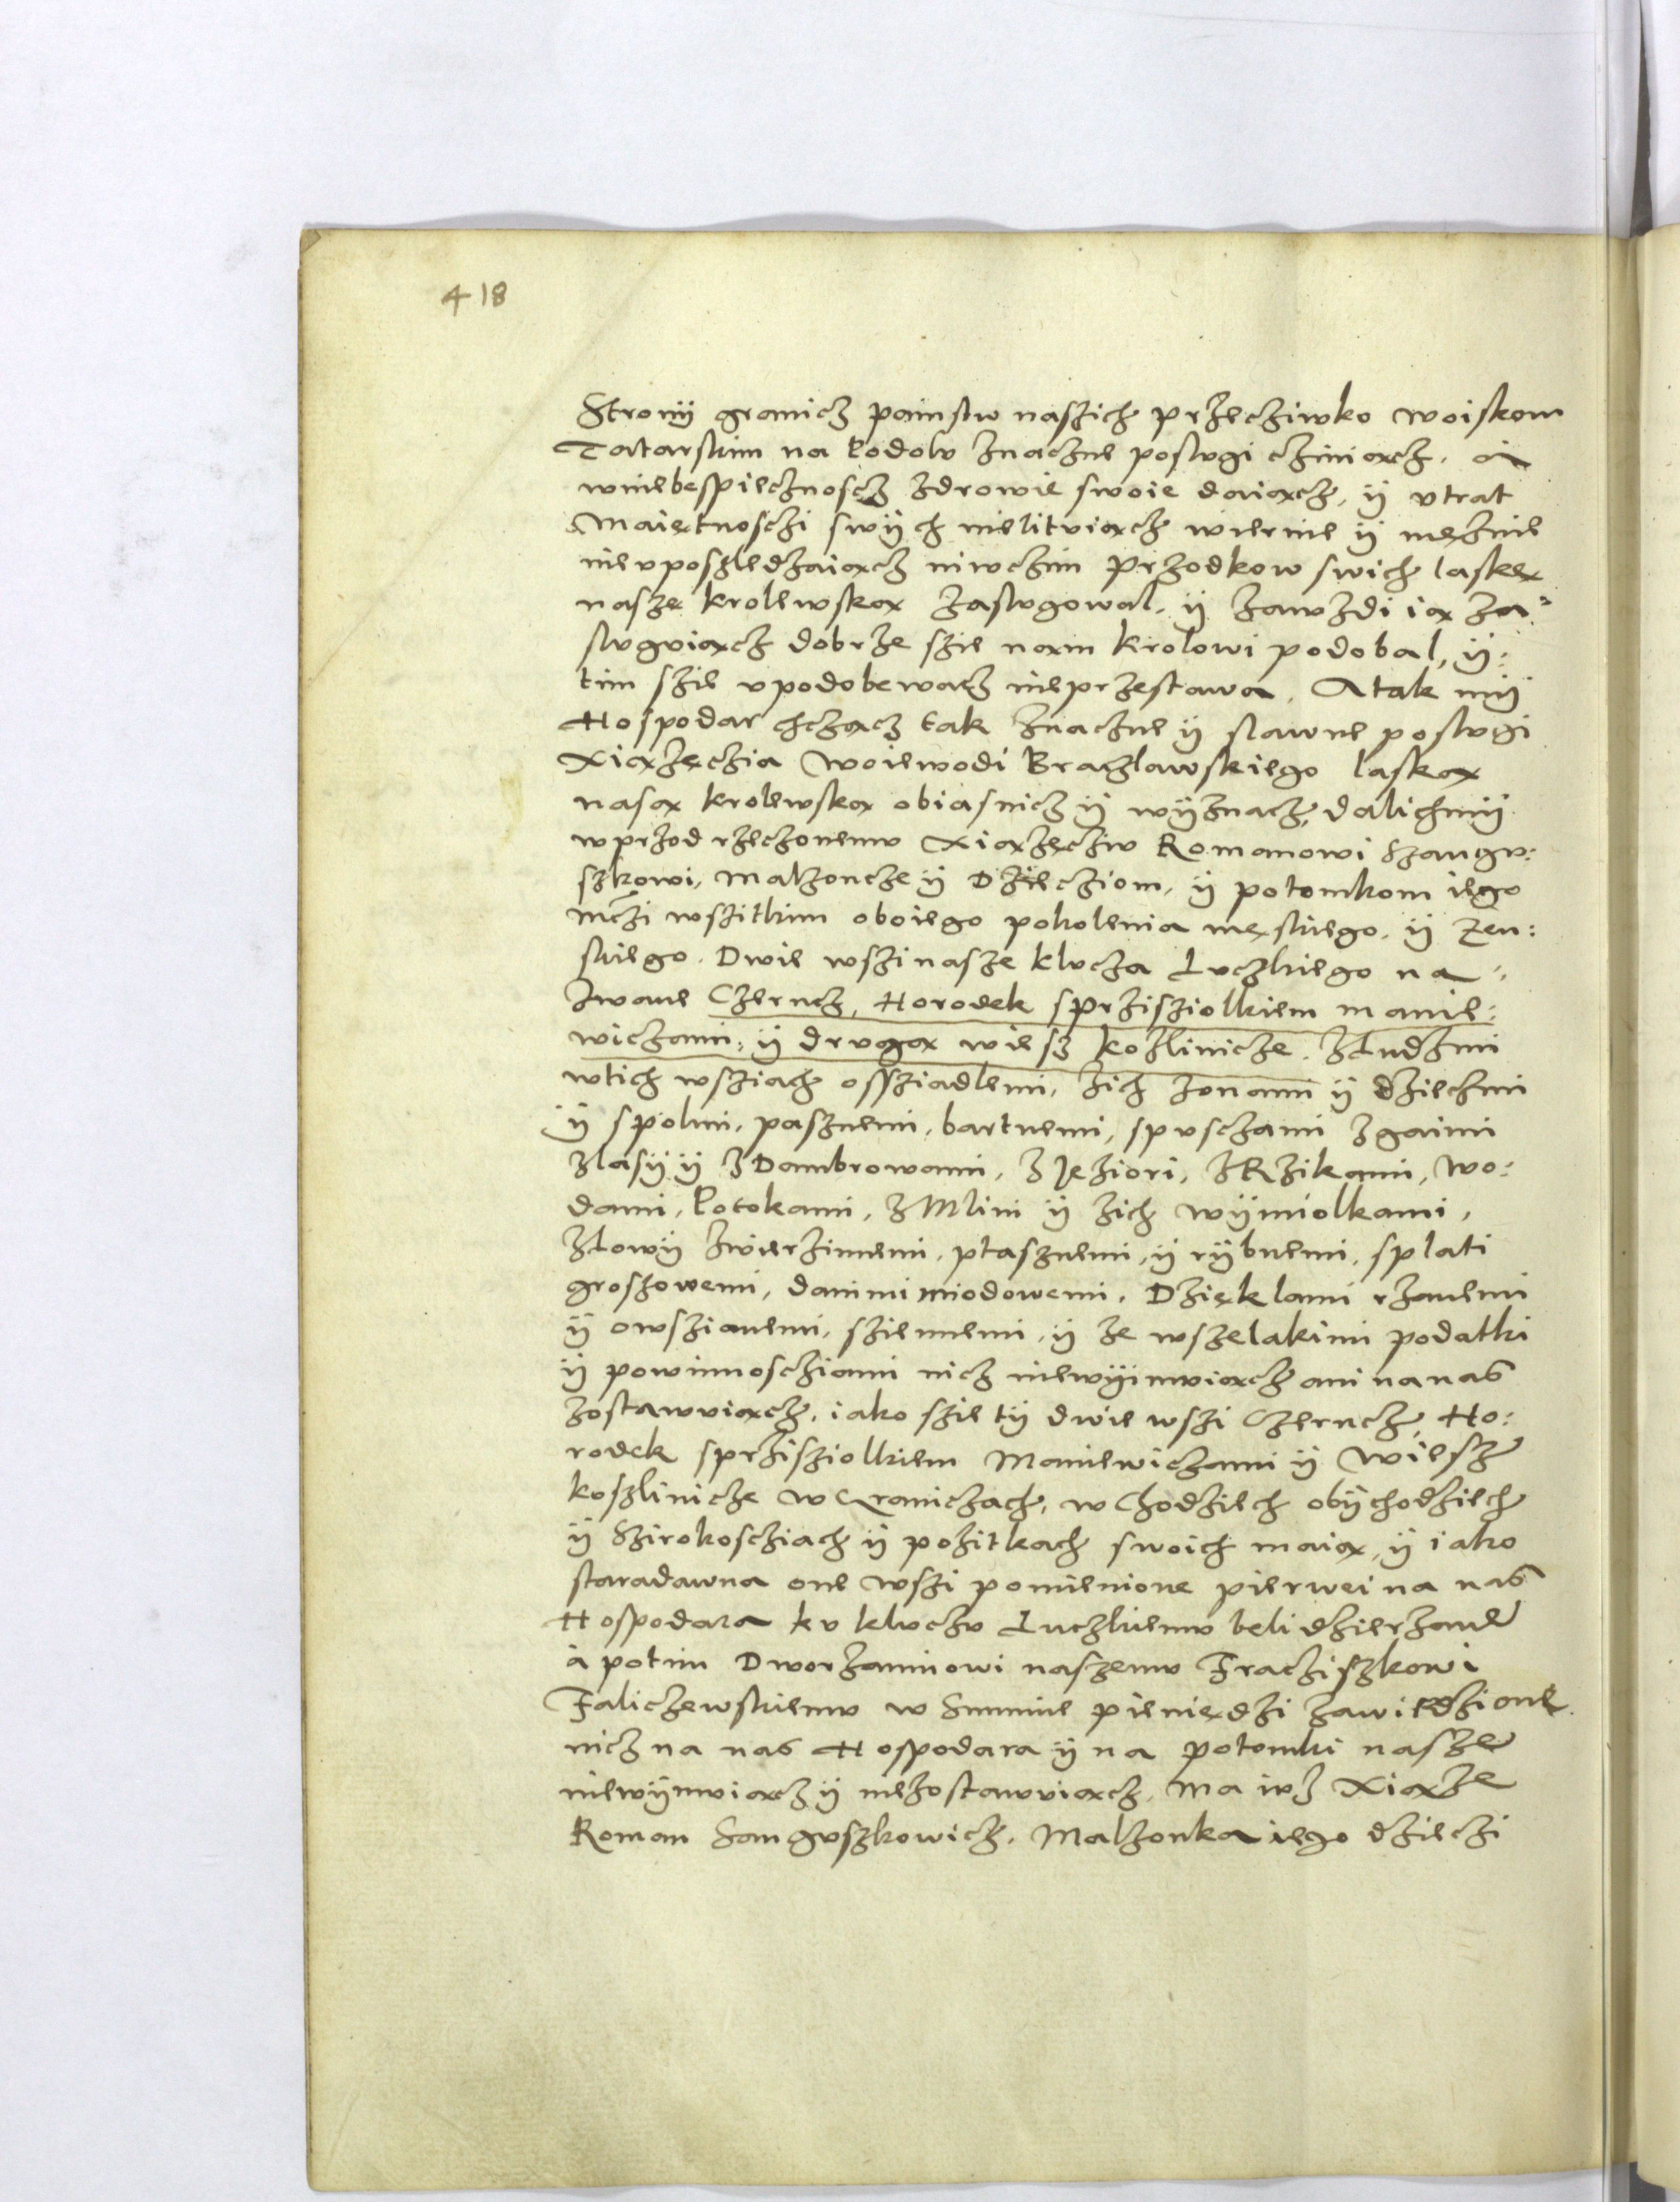 418
Stronÿ granicz painstw naszich przecziwko woiskom
Tatarskim na kodow znaczne poslvgi cziniącz. a
wniebespiecznoscz zdrowie swoie daiącz, ÿ vtrat
Maiętnosczi swÿch nielitviącz wiernie ÿ mężnie
nievposzledzaiącz niwczim Przodkow swich laskę
naszę krolewską zaslvgowal. ÿ zawzdi ią za=
slvgviącz dobrze szie nąm krolowi podobal, ÿ:
tim szie vpodobewacz nieprzestawa. Atak mÿ
Hospodar chcząc tak znaczne ÿ slawne poslvgi
Xiążęczia woiewodi Braczlawskiego laską
nasą krolewską obiasnicz ÿ wÿznacz, dalichmÿ
wprzod rzeczonemv Xiążęcziv Romanowi Szangv:
szkowi, malzoncze ÿ Dziecziom, ÿ potomkom iego
mczi wszitkim oboiego pokolenia męskiego. ÿ Zen:
skiego. Dwie wszi nasze klvcza Lvczkiego na=
zwane Czerncz, Horodek sprzisziolkiem manie:
wiczami: ÿ drvgą wiesz kozlinicze. zLudzmi
wtich wsziach osssziadlemi, zich zonami ÿ dziechmi
ÿ spolmi, pasznemi, bartnemi, spvsczami zgaimi
zlasÿ ÿ zDambrowami, z Jeziori, zRzikami, wo:
dami, Potokami, z Mlini ÿ zich wÿmiolkami,
zlowÿ zwierzinnemi, ptasznemi, ÿ rÿbnemi, splati
groszowemi, danimi miodowemi. Dzięklami rzanemi
ÿ owszianemi, sziennemi, ÿ ze wszelakimi podatki
ÿ powinnosciami nicz niewÿimviącz ani na nas
zostawviącz. iako szie tÿ dwie wszi Czerncz, Ho:
rodek sprzisziolkiem Maniewiczami ÿ wiesz
koszlinicze w Graniczach, w Chodziech obÿchodziech
ÿ Szirokosciach ÿ pozitkach swoich maią, ÿ iako
staradawna one wszi pomienione pierwei na nas
Hospodara kv klvczv Luczkiemv beli dzierzane
à potim Dworzaninowi naszemv Fracziszkowi
Faliczewskiemv w Summie pieniędzi zawiedzione
nicz na nas Hospodara ÿ na potomki nasze
niewÿmviącz ÿ niezostawviącz. Ma ivz Xiążę
Roman Sangvszkowicz. Malzonka iego dzieczi